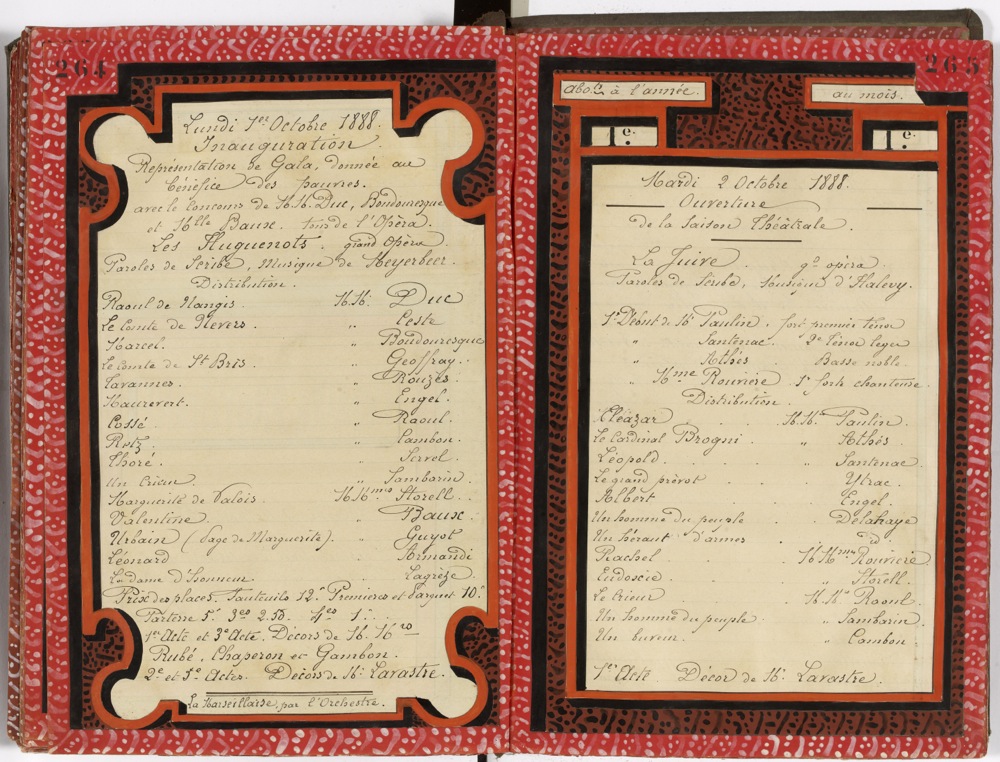 264
Lundi 1er Octobre 1888.
Inauguration
Représentation de Gala, donnée au
bénéfice des pauvres.
avec le concours de M.M. Duc, Boudouresque
et Mlle Baux. tous de l'Opéra.
Les Huguenots. grand Opéra.
Paroles de Scribe, Musique de Meyerbeer.
Distribution.
Raoul de Nangis. M.M. Duc
Le Comte de Nevers. " Ceste
Marcel. " Boudouresque
Le comte de St Bris. " Geoffray.
Tavannes. " Rouzès.
Maurevert. " Engel.
Cossé " Raoul.
Retz. " Cambon.
Thoré. " Servel.
Un crieur " Sambarin.
Marguerite de Valois M.Mmes Storell.
Valentine. " Baux.
Urbain (Page de Marguerite). " Guyot
Léonard " Armandi
La dame d'honneur. . Lagrèze.
Prix des places. Fauteuils 12." Premieres et Parquet 10."
Parterre 5." 3es 2.50. 4es 1."
1er Acte et 3e Acte. Décors de M. M.rs
Rubé, Chaperon et Gambon.
2e et 5e Actes. Décors de Mr Lavastre.
La Marseillaise, par l'Orchestre.
265
Abo.t à l'année.
au mois.
1e.
1e.
Mardi 2 Octobre 1888.
Ouverture
de la Saison Théâtrale.
La Juive. gd opéra.
Paroles de Scribe, Musique d'Halevy.
1er Début de Mr Paulin. fort premier Ténor
" Santenac. 2e Ténor leger
" Athès. Basse noble.
" Mme Rouvière 1e forte chanteuse.
Distribution.
Eléazar M.M. Paulin.
Le Cardinal Brogni. " Athès.
Léopold. " Santenac.
Le grand prévot " Ytrac.
Albert Engel.
Un homme du peuple Delahaye
Un héraut d'armes d°
Rachel M.Mmes Rouvière
Eudoxie. " Storell.
Le Crieur M.M. Raoul.
Un homme du peuple. " Sambarin.
Un buveur. " Cambon.
1er Acte. Décor de Mr Lavastre.